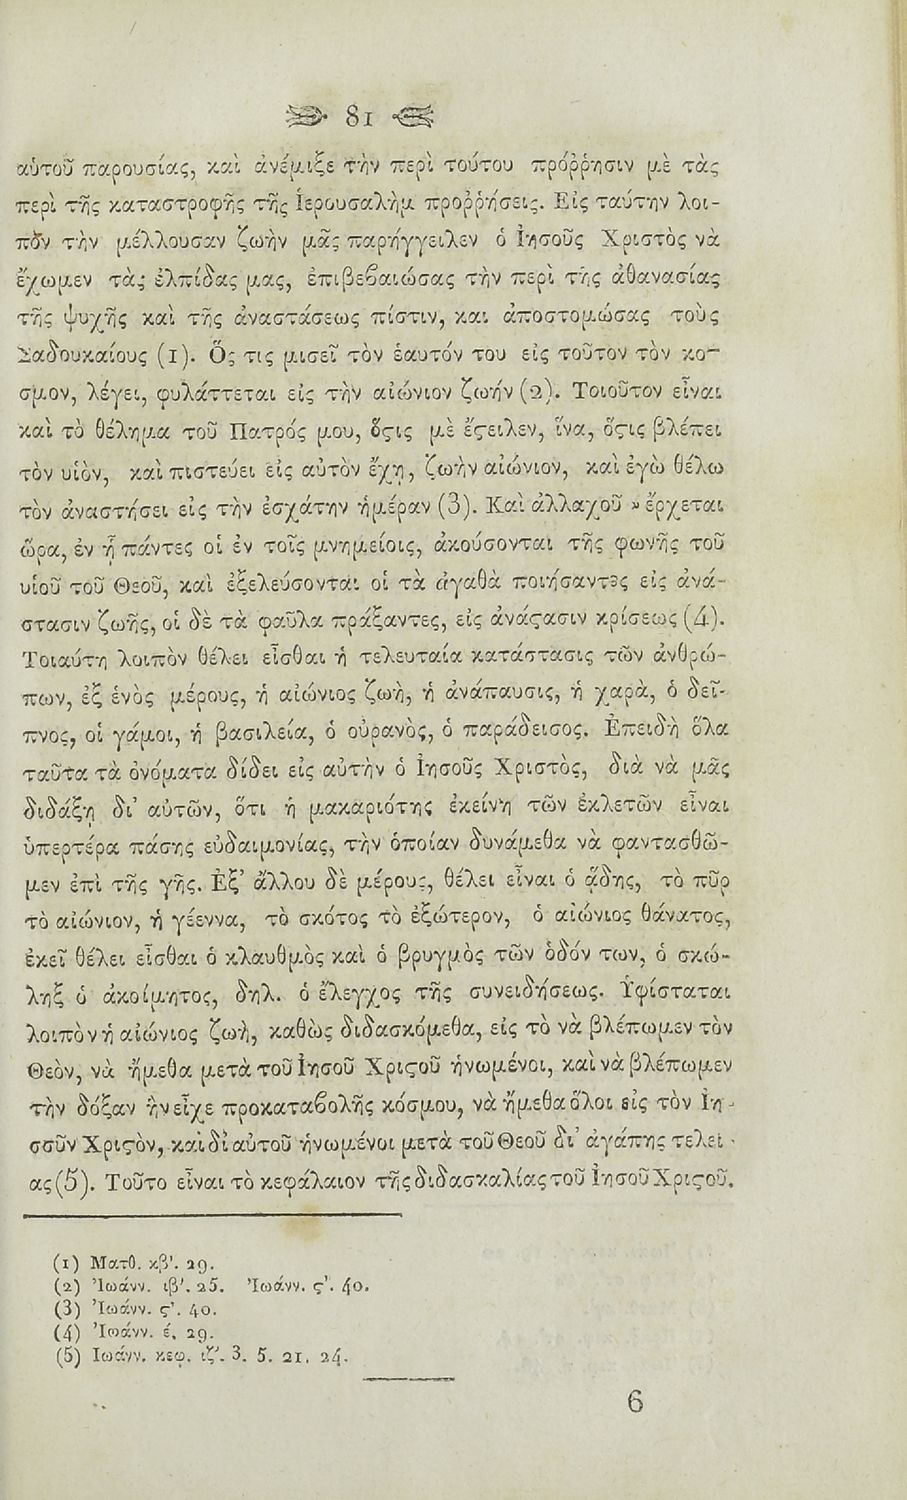 81
αὐτοῦ παρουσίας, καὶ ἀνέμιξε τὴν περὶ τούτου πρόῤῥησιν μὲ τὰς
περὶ τῆς καταστροφῆς τῆς Ἱερουσαλὴμ προῤῥήσεις. Εἰς ταύτην λοι-
πὸν τὴν μέλλουσαν ζωὴν μᾶς παρήγγειλεν ὁ Ἰησοῦς Χριστὸς νὰ
ἔχωμεν τὰς ἐλπίδας μας, ἐπιβεϐαιώσας τὴν περὶ τῆς ἀθανασίας
τῆς ψυχῆς καὶ τῆς ἀναστάσεως πίστιν, καὶ ἀποστομώσας τοὺς
Σαδουκαίους (1). Ὅς τις μισεῖ τὸν ἑαυτόν του εἰς τοῦτον τὸν κό-
σμον, λέγει, φυλάττεται εἰς τὴν αἰώνιον ζωήν (2). Τοιοῦτον εἶναι
καὶ τὸ θέλημα τοῦ Πατρός μου, ὅϛις μὲ ἔϛειλεν, ἵνα, ὅϛις βλέπει
τὸν υἱὸν, καὶ πιστεύει εἰς αὐτὸν ἔχῃ, ζωὴν αἰώνιον, καὶ ἐγὼ θέλω
τὸν ἀναστήσει εἰς τὴν ἐσχάτην ἡμέραν (3). Καὶ ἀλλαχοῦ » ἔρχεται
ὥρα, ἐν ᾗ πάντες οἱ ἐν τοῖς μνημείοις, ἀκούσονται τῆς φωνῆς τοῦ
υἱοῦ τοῦ Θεοῦ, καὶ ἐξελεύσονται οἱ τὰ ἀγαθὰ ποιήσαντες εἰς ἀνά-
στασιν ζωῆς, οἱ δὲ τὰ φαῦλα πράξαντες, εἰς ἀνάϛασιν κρίσεως (4).
Τοιαύτη λοιπὸν θέλει εἶσθαι ἡ τελευταία κατάστασις τῶν ἀνθρώ-
πων, ἐξ ἑνὸς μέρους, ἡ αἰώνιος ζωὴ, ἡ ἀνάπαυσις, ἡ χαρὰ, ὁ δεῖ-
πνος, οἱ γάμοι, ἡ βασιλεία, ὁ οὐρανὸς, ὁ παράδεισος. Ἐπειδὴ ὅλα
ταῦτα τὰ ὀνόματα δίδει εἰς αὐτὴν ὁ Ἰησοῦς Χριστὸς, διὰ νὰ μᾶς
διδάξῃ δι' αὐτῶν, ὅτι ἡ μακαριότης ἐκείνη τῶν ἐκλετῶν εἶναι
ὑπερτέρα πάσης εὐδαιμονίας, τὴν ὁποίαν δυνάμεθα νὰ φαντασθῶ-
μεν ἐπὶ τῆς γῆς. Ἐξ' ἄλλου δὲ μέρους, θέλει εἶναι ὁ ᾅδης, τὸ πῦρ
τὸ αἰώνιον, ἡ γέεννα, τὸ σκότος τὸ ἐξώτερον, ὁ αἰώνιος θάνατος,
ἐκεῖ θέλει εἶσθαι ὁ κλαυθμὸς καὶ ὁ βρυγμὸς τῶν ὁδόν των, ὁ σκώ-
ληξ ὁ ἀκοίμητος, δηλ. ὁ ἔλεγχος τῆς συνειδήσεως. Ὑφίσταται
λοιπὸν ἡ αἰώνιος ζωὴ, καθὼς διδασκόμεθα, εἰς τὸ νὰ βλέπωμεν τὸν
Θεὸν, νὰ ἤμεθα μετὰ τοῦ Ἰησοῦ Χριϛοῦ ἡνωμένοι, καὶ νὰ βλέπωμεν
τὴν δόξαν ἣν εἶχε προκαταϐολῆς κόσμου, νὰ ἤμεθα ὅλοι εἰς τὸν Ἰη-
σοῦν Χριϛὸν, καὶ δι αὐτοῦ ἡνωμένοι μετὰ τοῦ Θεοῦ δι' ἀγάπης τελεί-
ας (5). Τοῦτο εἶναι τὸ κεφάλαιον τῆς διδασκαλίας τοῦ Ἰησοῦ Χριϛοῦ.
(1) Ματθ. κβ'. 29.
(2) Ἰωάνν. ιβ'. 25. Ἰωάνν. ϛ'. 40.
(3) Ἰωάνν. ϛ'. 40.
(4) Ἰωάνν. έ. 29.
(5) Ιωάνν. κεφ. ιζ'. 3. 5. 21. 24.
6